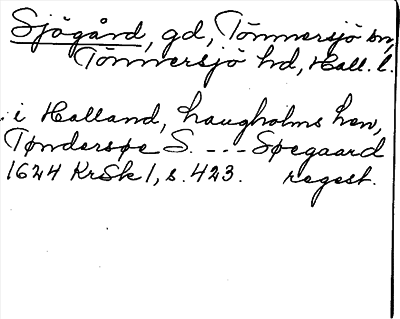 Sjögård, gd, Tönnersjö sn,
Tönnersjö hd, Hall. l.
i Halland, Laugholms len,
Tøndersøe S. --- Søegaard
1624 KrSk 1, s. 423. regest.